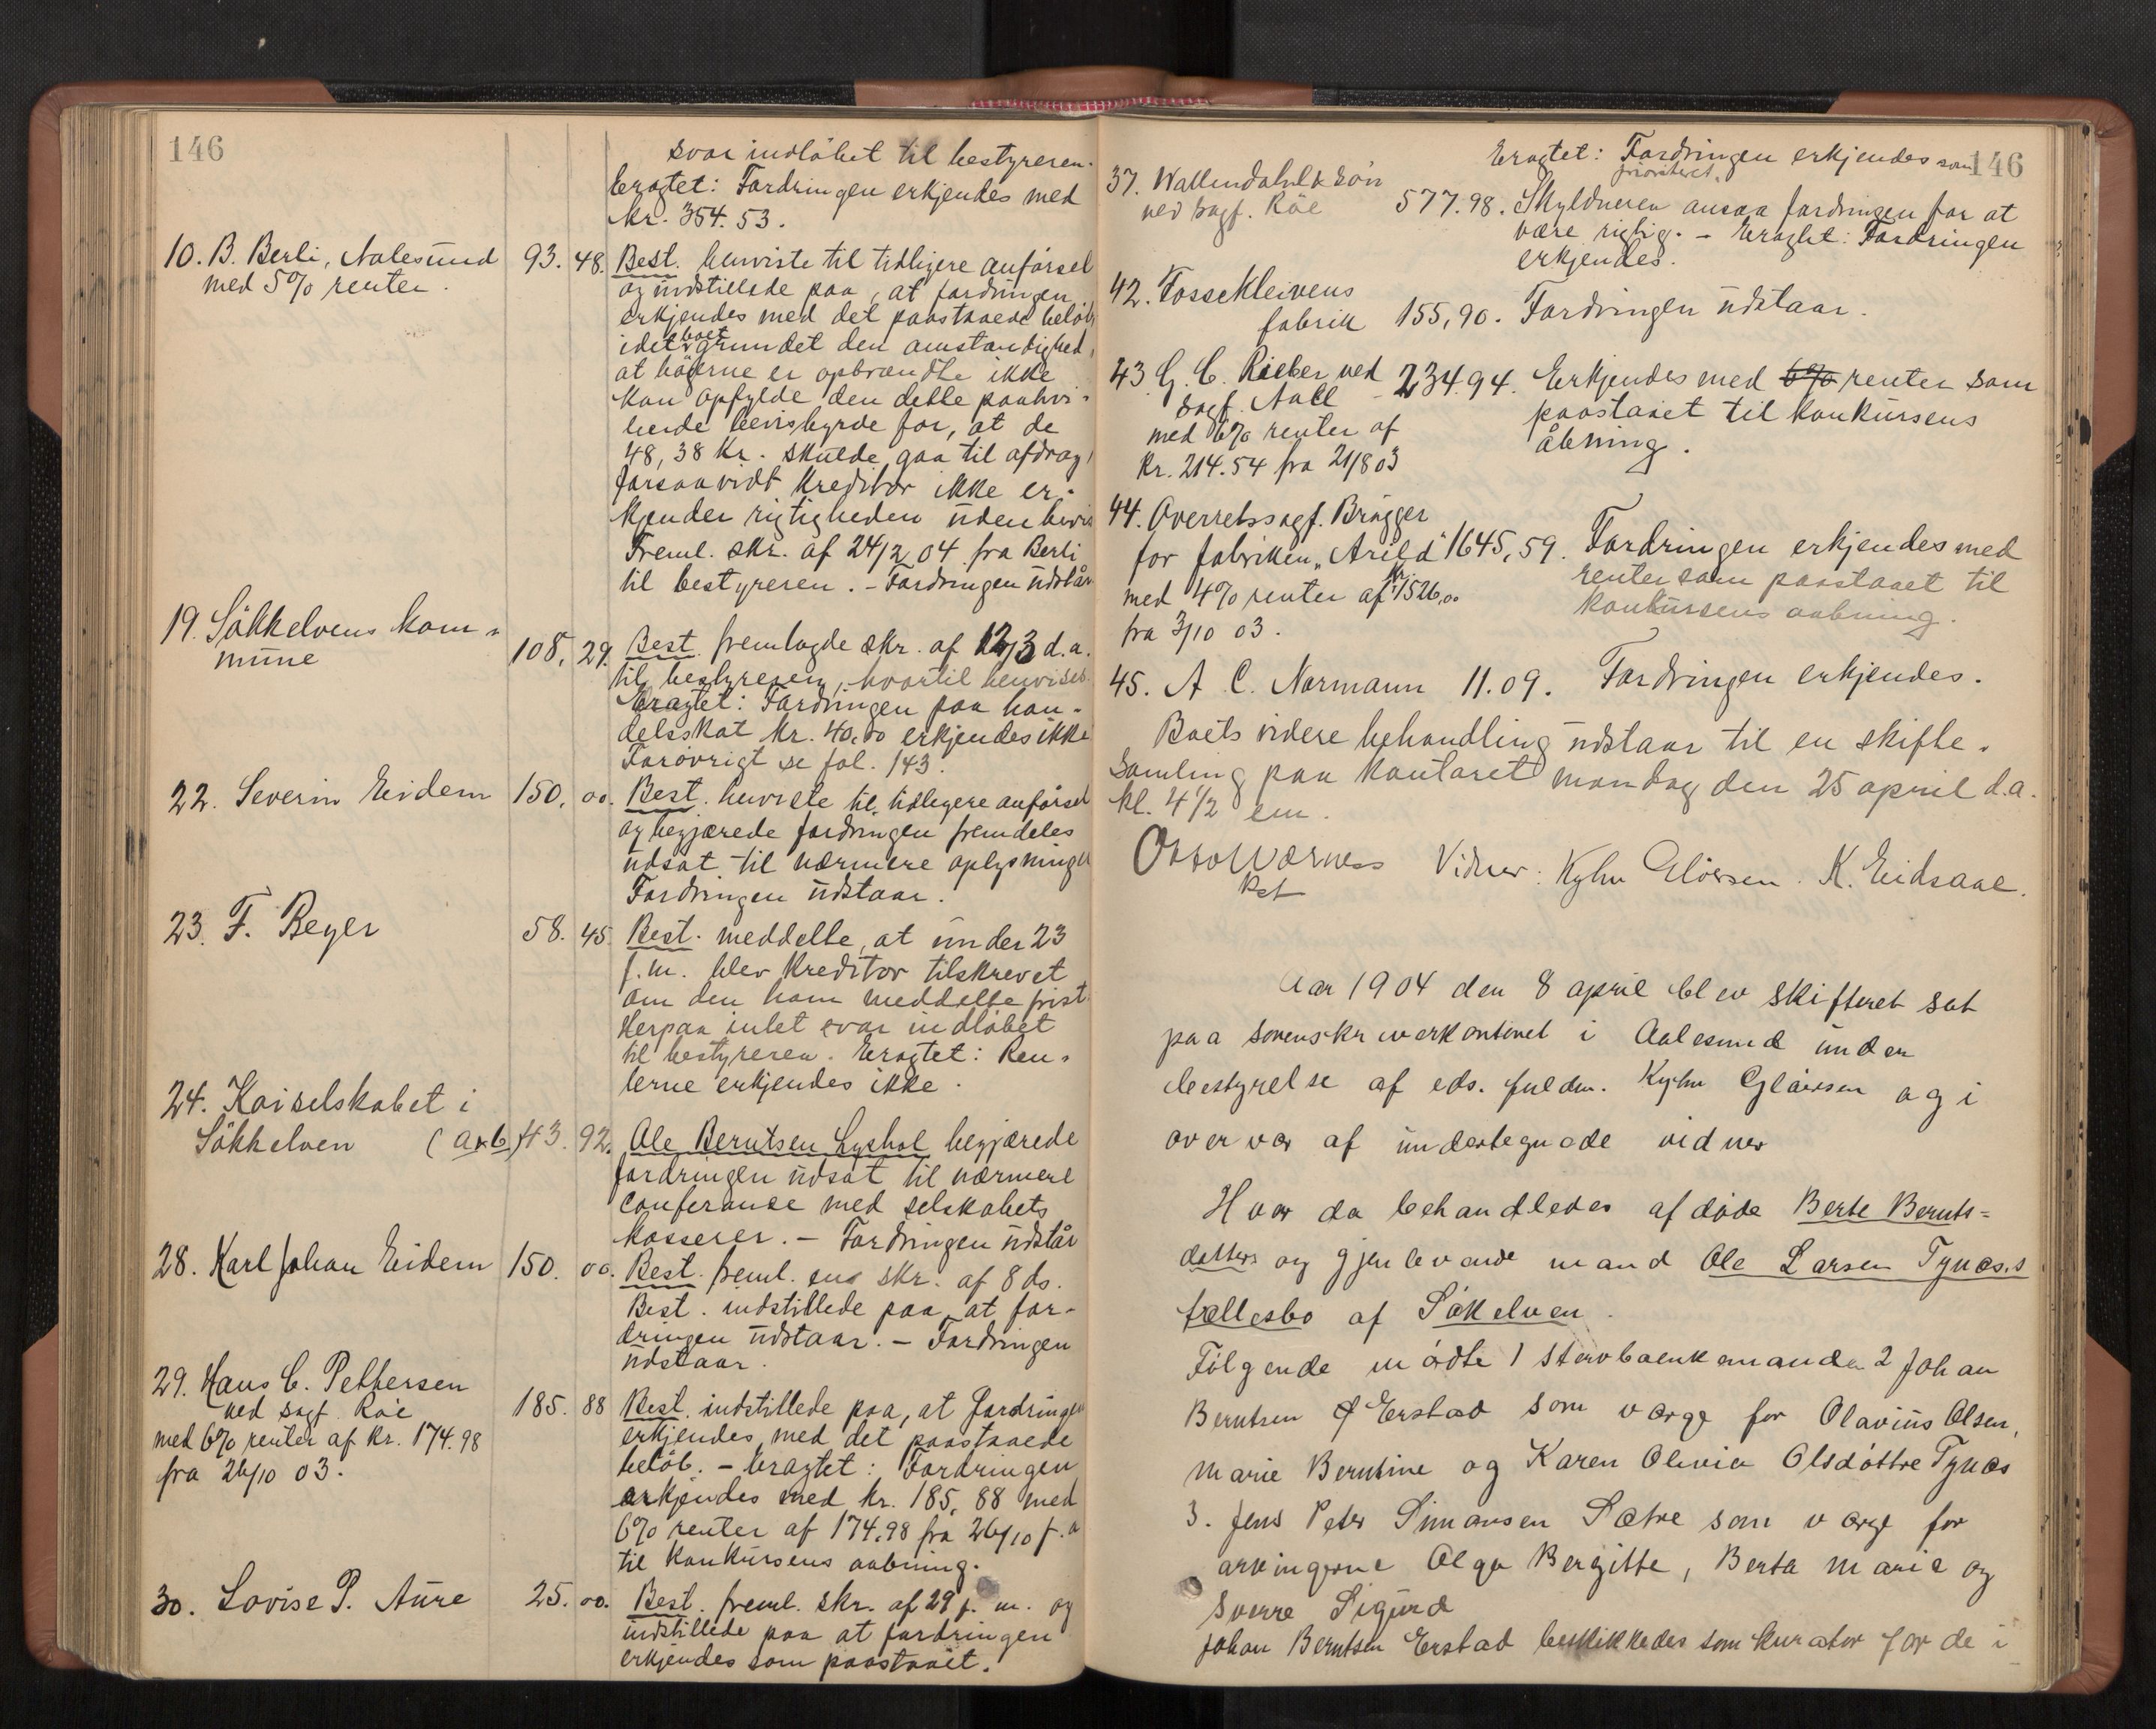 146
svar indløbet til bestyreren.
Eragtet: Fordringen erkjendes med
kr. 354.53.
10. B. Berli, Aalesund 93. 48. Best. henviste til tidligere anførsel
med 5% renter. og indstillede paa, at fordringen
erkjendes med det paastaaede beløb
idet boet grundet den omstændighed,
at bøgerne er opbrændte ikke
kan opfylde den dette paahvi-
lende bevisbyrde for, at de
48,38 kr. skulde gaa til afdrag,
forsaavidt kreditor ikke er-
kjender rigtigheden uden bevis
Freml. skr. af 24/2 04 fra Berli
til bestyreren. - Fordringen udstår
19. Søkkelvens kom-
mune 108, 29. Best. fremlagde skr. af 12/3 d.a.
til bestyreren, hvortil henvises.
Eragtet: Fordringen paa han-
delsskat kr. 40,00 erkjendes ikke
Forøvrigt se fol. 143.
22. Severin Eidem 150, 00. Best. henviste til tidligere anførsel
og begjærede fordringen fremdeles
udsat til nærmere oplysninger
Fordringen udstaar.
23. F. Beyer 58. 45. Best. meddelte, at under 23
f.m. blev kreditor tilskrevet
om den ham meddelte frist.
Herpaa intet svar indløbet
til bestyreren. Eragtet: Ren-
terne erkjendes ikke.
24. Kaiselskabet i
Søkkelven (a+b) 43. 92. Ole Berntsen Lyshol begjærede
fordringen udsat til nærmere
conferanse med selskabets
kasserer. - Fordringen udstår
28. Karl Johan Eidem 150. 00. Best. freml. skr. af 8 ds.
Best. indstillede paa, at for-
dringen udstaar. - Fordringen
udstaar.
29. Hans C. Pettersen
ved sagf. Røe 185. 88 Best. indstillede paa, at fordringen
med 6% renter af kr. 174.98 erkjendes med det paastaaede
fra 26/10 03. beløb. - Eragtet: Fordringen
erkjendes med kr. 185,88 med
6% renter af 174.98 fra 26/10 f.a
til konkursens aabning.
30. Lovise P. Aure 25. 00. Best. freml. skr. af 29 f.m. og
indstillede paa at fordringen
erkjendes som paastaaet.
146
Eragtet: Fordringen erkjendes som
prioriteret.
37. Wallendahl & Søn
ved sagf. Røe 577.98. Skyldneren ansaa fordringen for at
være rigtig. - Eragtet: Fordringen
erkjendes.
42. Fossekleivens
fabrik 155,90. Fordringen udstaar.
43 G. C. Rieber ved 234.94. Erkjendes med 6% renter som
sagf. Aall paastaaet til konkursens
med 6% renter af åbning.
kr. 214.54 fra 21/8 03
44. Overretssagf. Brügger
for fabriken "Arild" 1645,59. Fordringen erkjendes med
med 4% renter af kr 1526,00 renter som paastaaet til
fra 3/10 03. konkursens aabning.
45. A C. Normann 11.09. Fordringen erkjendes.
Boets videre behandling udstaar til en skifte-
samling paa kontoret mandag den 25 april d.a.
kl. 4 1/2 em.
Otto Værness Vidner: Kyhn Gløersen. K. Eidsaae.
kst
Aar 1904 den 8 april blev skifteret sat
paa sorenskriverkontoret i Aalesund under
bestyrelse af eds. fuldm. Kyhn Gløersen og i
overvær af undertegnede vidner
Hvor da behandledes afdøde Berte Bernts-
datters og gjenlevende mand Ole Larsen Tynæs.s
fællesbo af Søkelven.
Følgende mødte 1 stervboenkemanden 2 Johan
Berntsen Erstad som værge for Olavius Olsen,
Marie Berntine og Karen Olivia Olsdøttre Tynæs
3. Jens Peter Simonsen Sætre som værge for
arvingerne Olga Bergitte, Berta Marie og
Sverre Sigurd
Johan Berntsen Erstad beskikkedes som kurator for de i